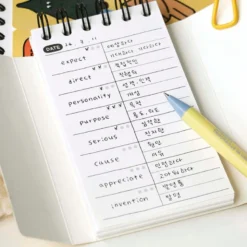 DATE
expect
예상하다
direct
직접적인
personality
성격, 인격
개성
purpose
목적
용도, 의도
serious
심각한
진지한
cause
원인
이유
appreciate
고마워하다
invention
발명품
발명